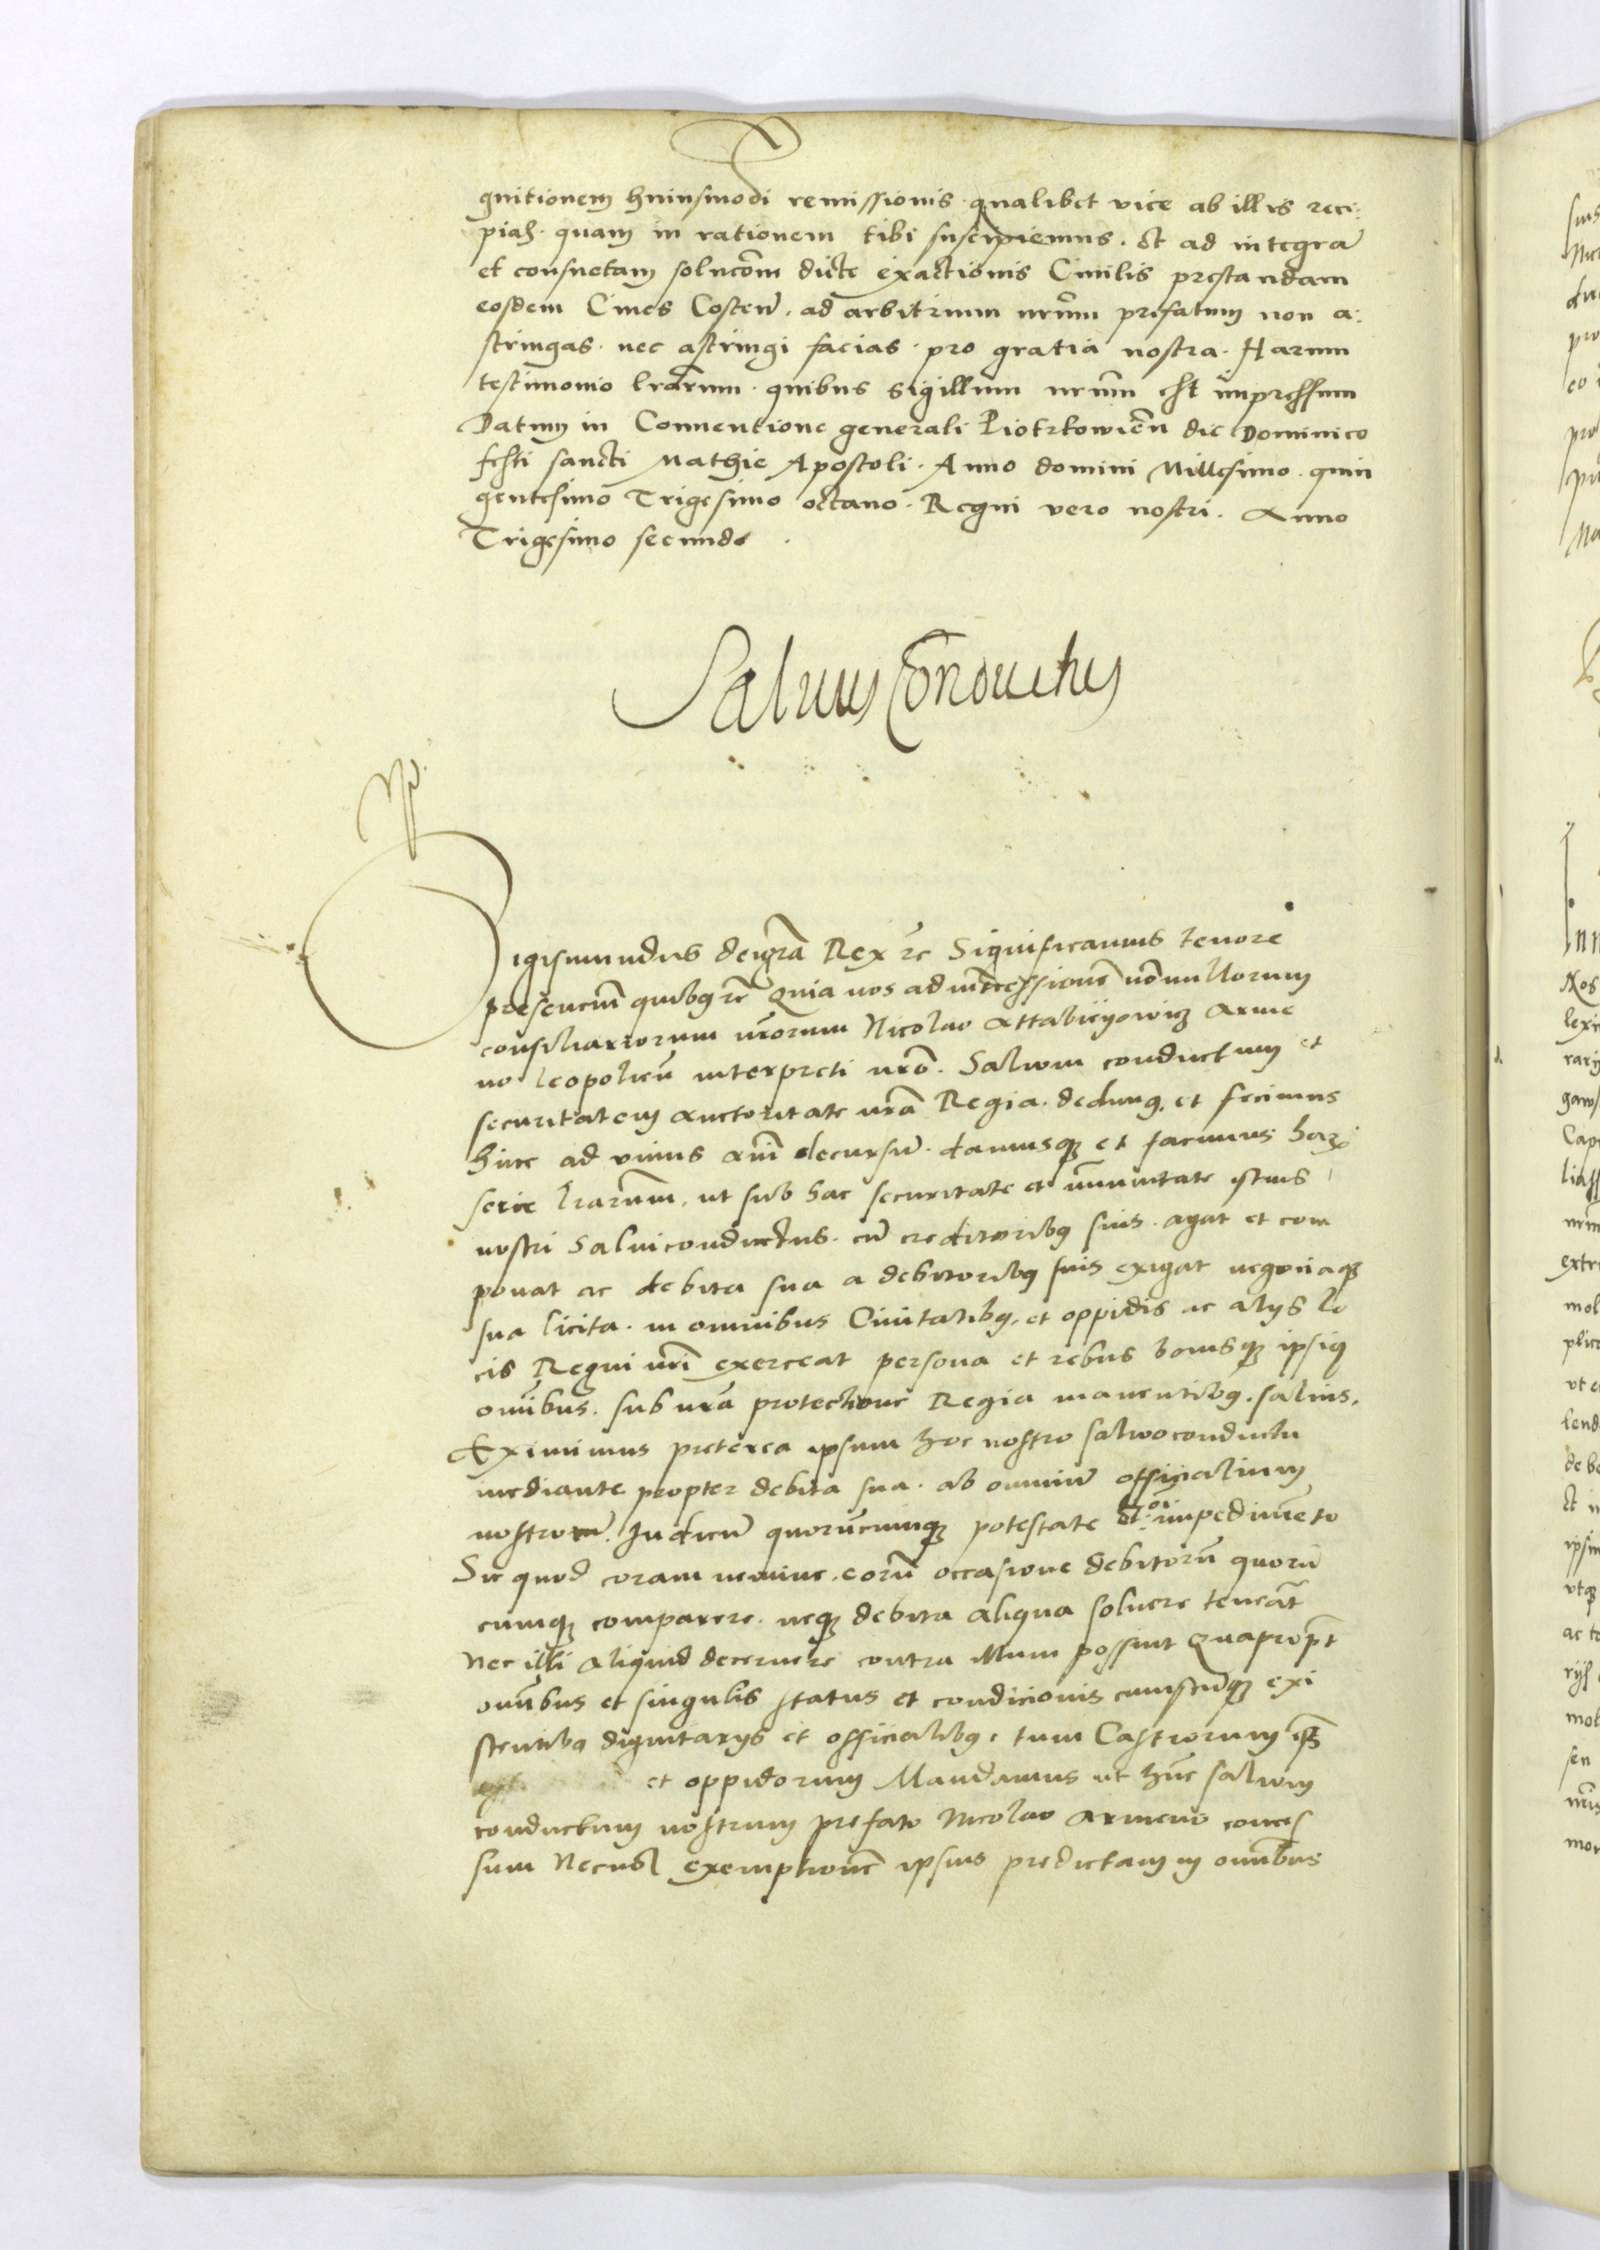 gnitionem huiusmodi remissionis qualibet vice ab illis reci:
pias. quam in rationem tibi suscipiemus. Et ad integrã
et consuetam solucõm dicte exactionis Ciuilis prestandam
eosdem Ciues Costeñ. ad arbitrium nrũm prefatum non a:
stringas. nec astringi facias. pro gratia nostra. Harum
testimonio lrãrum. quibus Sigillum nrũm est impressum
Datum in Conuentione generali Piotrkowieñ die Dominico
festi sancti Mathie Apostoli. Anno domini Millesimo. quin
gentesimo Trigesimo octauo. Regni vero nostri. Anno
Trigesimo secundo.
Saluus Conductus
Sigismundus dei grã Rex etc Significamus tenore
presenciũ quibus etc Quia nos ad intercessionẽ nõnullorum
consiliariorum nrõrum Nicolao Attabieyowicz Arme
no leopolieñ interpreti nrõ. Saluum conductum et
securitatem auctoritate nrã Regia. dedimus. et fecimus
hinc ad vnius anni decursũ. damusque et facimus harum
serie lrarum. ut sub hac securitate et immunitate istius
nostri Saluiconductus. cũ creditoribus suis. agat et com
ponat ac debita sua a debitoribus suis exigat negociaque
sua licita. in omnibus Ciuitatibus. et oppidis ac alijs lo
cis Regni nrĩ exerceat persona et rebus bonisque ipsius
omĩbus. sub nrã protectione Regia manentibus. saluis.
Eximimus preterea ipsum hoc nostro saluoconductu
mediante propter debita sua. ab omniũ officialium
nostrorũ. Iudicũ quorũcumque potestate et impedimẽto
Sic quod coram nemine. eorũ occasione debitorũ quorũ
cumque comparere. neque debita aliqua soluere teneãt
Nec illi aliquid decernere contra illum possint Quapropt
omĩbus et singulis status et condicionis cuiuscũque exi
stentibus dignitarijs et officialibus. tum Castrorum
et oppidorum Mandamus ut hũc saluum
conductum nostrum prefato Nicolao Armeno conces
sum Necnõ exemptionẽ ipsius predictam in omnibus